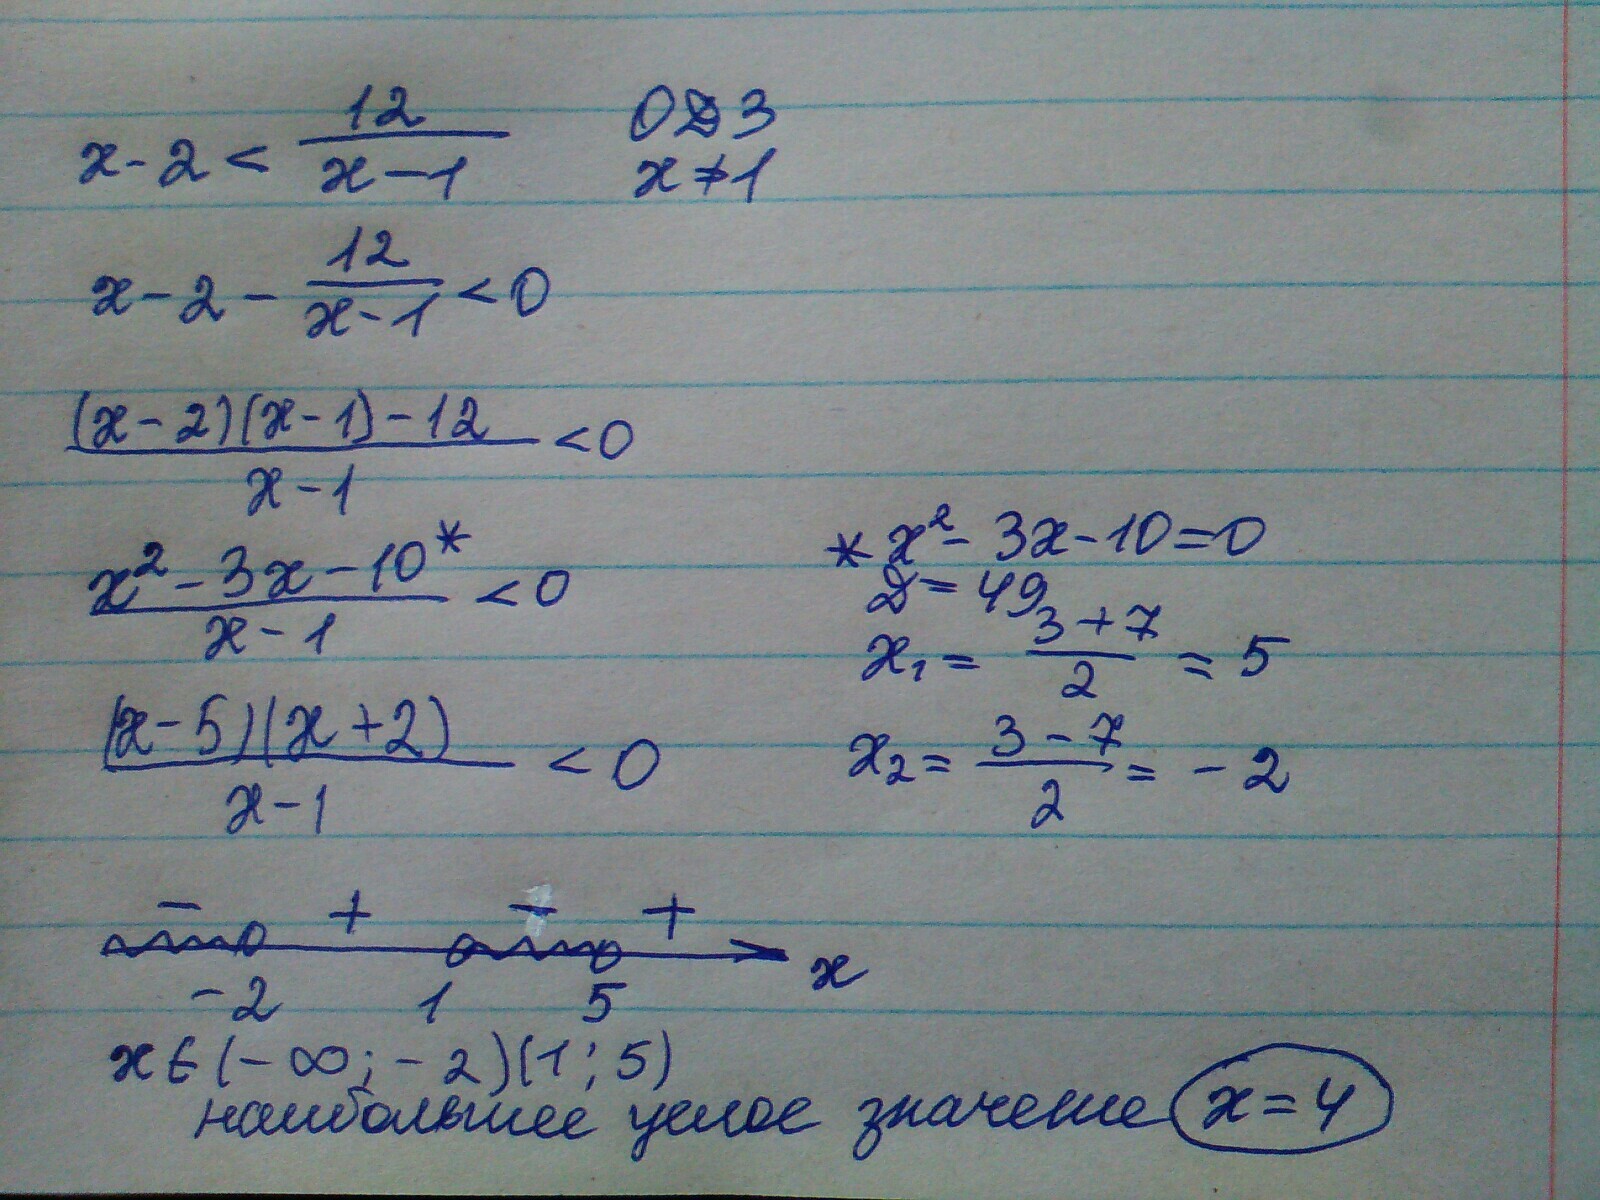 x - 2 < 12/(x - 1) ОДЗ
x ≠ 1
x - 2 - 12/(x - 1) < 0
((x - 2)(x - 1) - 12)/(x - 1) < 0
(x² - 3x - 10*)/(x - 1) < 0
* x² - 3x - 10 = 0
D = 49
x₁ = (3 + 7)/2 = 5
((x - 5)(x + 2))/(x - 1) < 0
x₂ = (3 - 7)/2 = -2
- + - +
-2 1 5 x
x ∈ (-∞; -2)(1; 5)
наибольшее целое значение x = 4